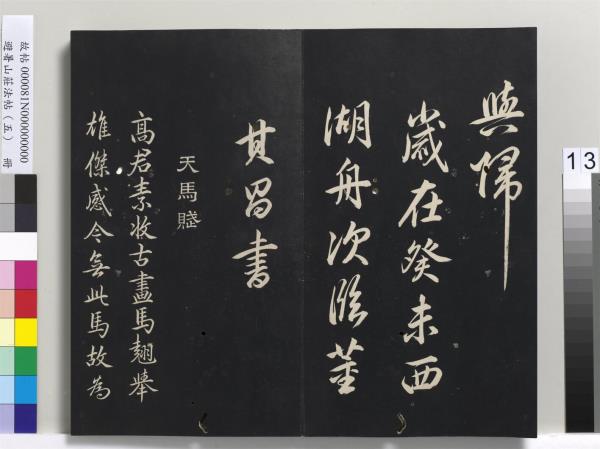 與歸
歲在癸未西
湖舟次臨董
其昌書
天馬賦
高君素收古畫馬翹舉
雄傑感今無此馬故為
故帖 000081N000000000
避暑山莊法帖（五） 冊
13